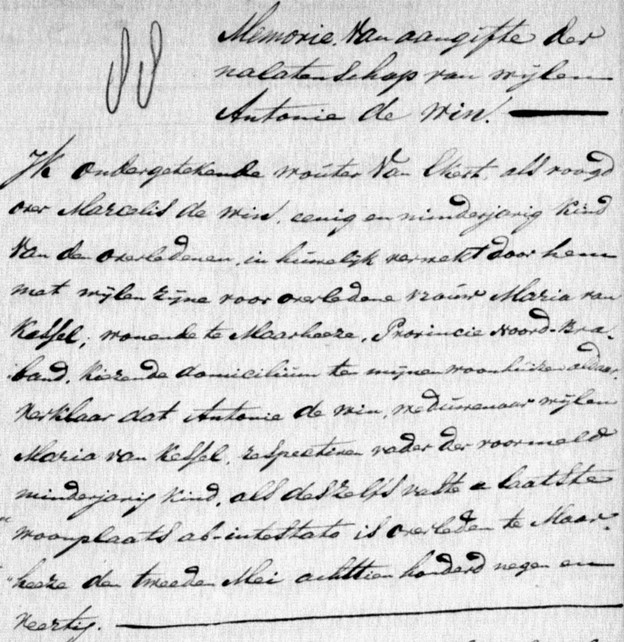 88
Memorie van aangifte der
nalatenschap van wijlen
Antonie de Win.
Ik ondergetekende Wouter van , als voogd
over Marcelis de Win, eenig en minderjarig kind
van den overledenen, in huwelijk verwekt door hem
met wijlen zijne voor overledene vrouw Maria van
Kessel, wonende te Maarheeze, Provincie Noord-Bra-
band, kiezende domicilium ten mijnen woonhuize aldaar.
Verklaar dat Antonie de Win, weduwenaar wijlen
Maria van Kessel, respectiven vader der voormeld
minderjarig kind, als deszelfs vaste & laatste
woonplaats ab-intestato is overleden te Maar-
"heeze den tweeden Mei achttien honderd negen en
veertig.